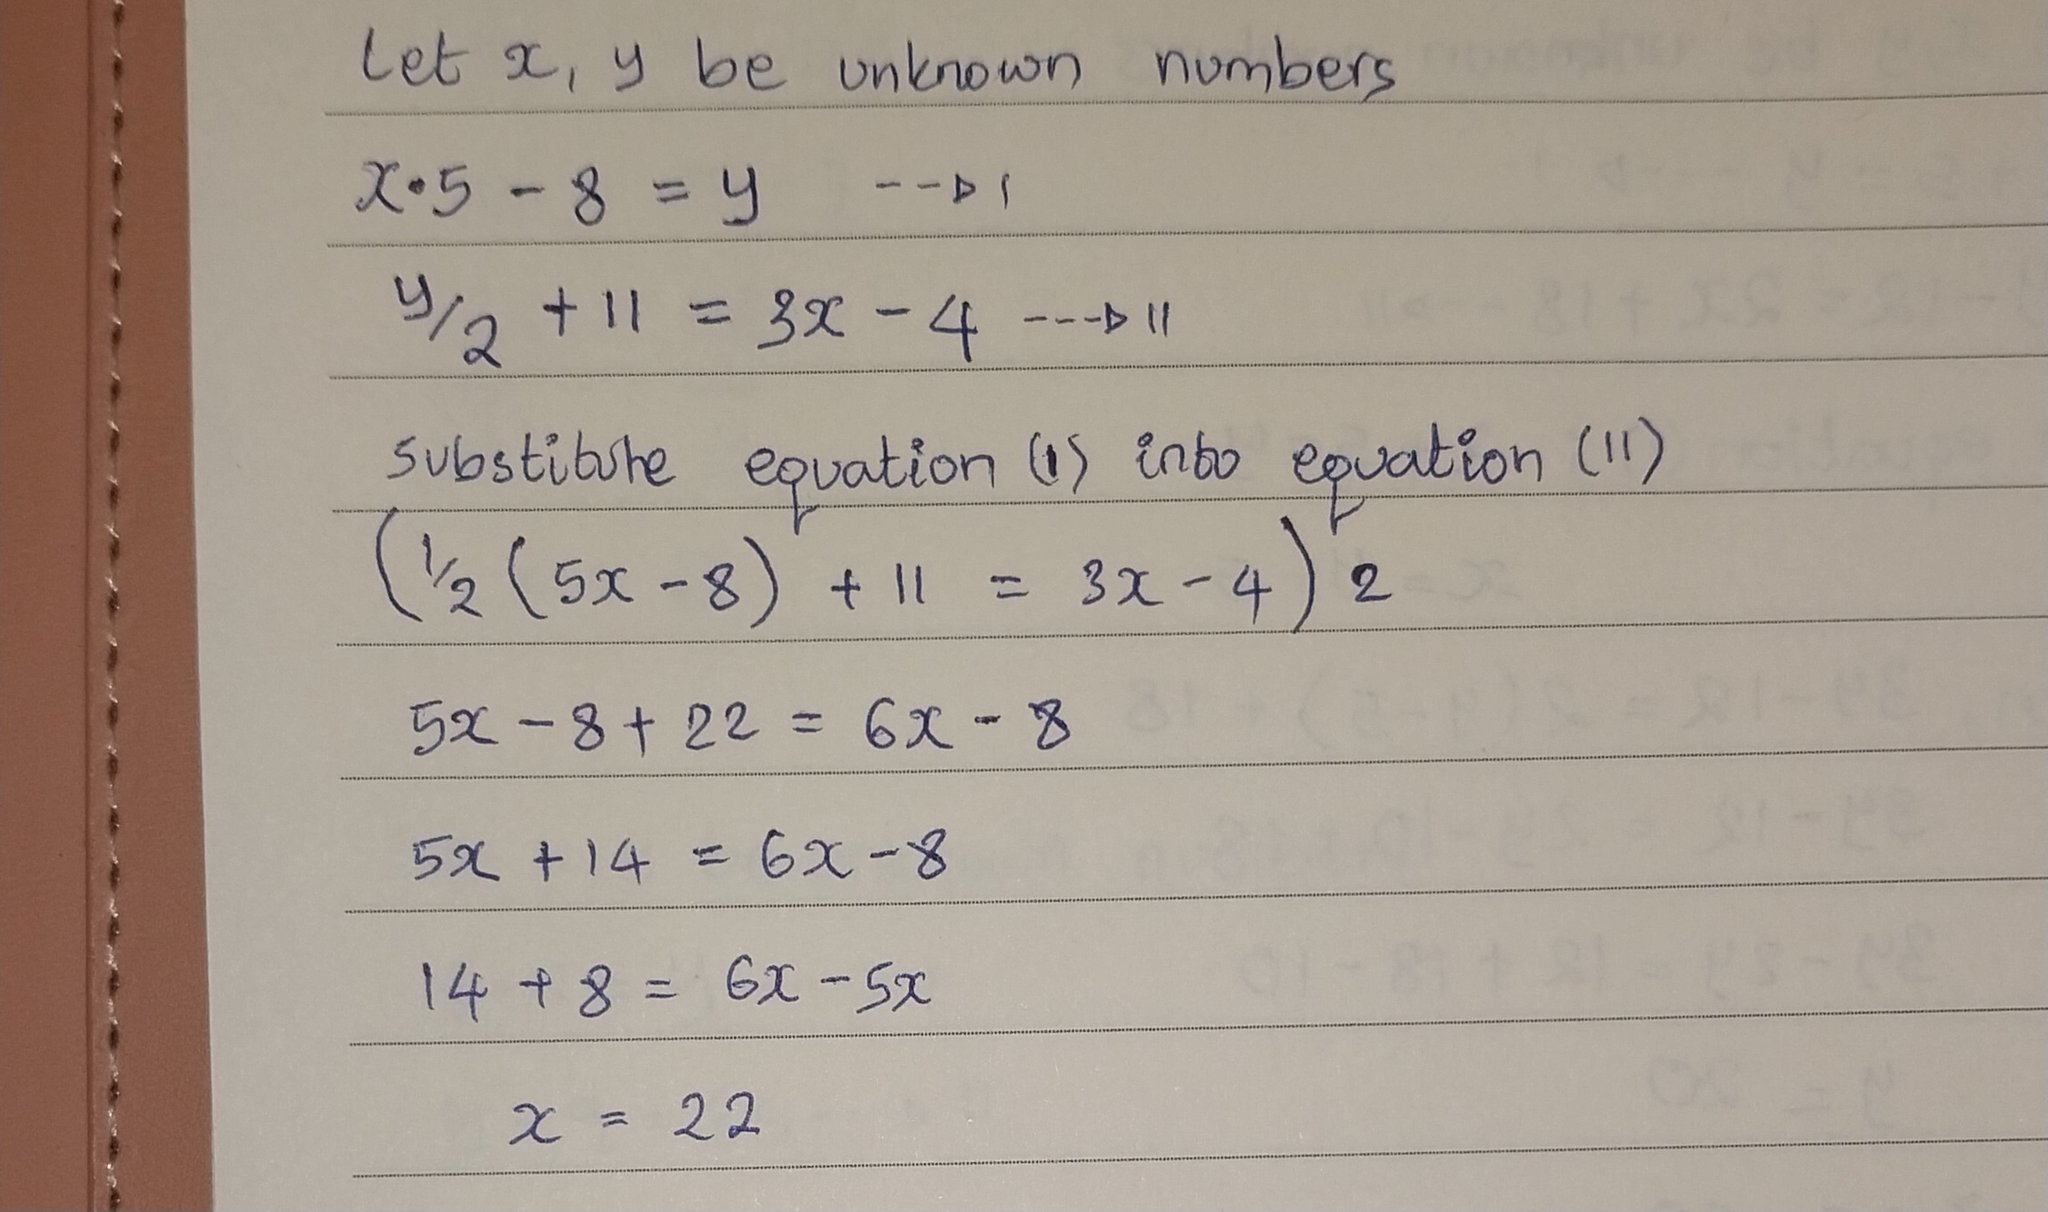 Let x, y be unknown numbers
x•5 - 8 = y --▷ I
y/2 + 11 = 3x - 4 ---▷ II
substitute equation (I) into equation (II)
(1/2 (5x - 8) + 11 = 3x - 4) 2
5x - 8 + 22 = 6x - 8
5x + 14 = 6x - 8
14 + 8 = 6x - 5x
x = 22